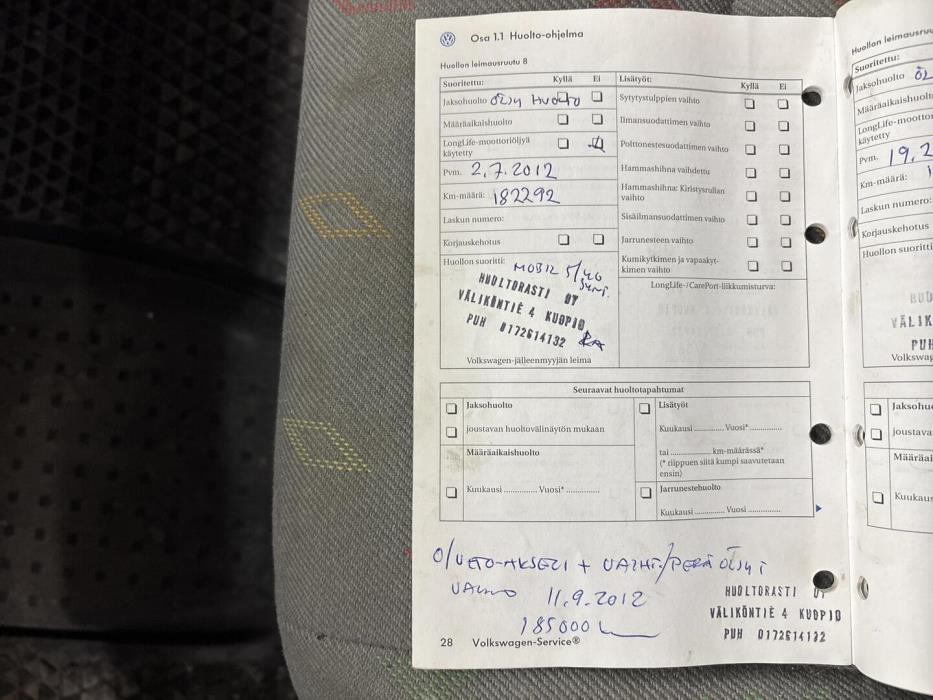 Osa 1.1 Huolto-ohjelma
Huollon leimausruutu 8
Suoritettu: Kyllä Ei
Jaksohuolto ÖLJY HUOLTO
Määräaikaishuolto
LongLife-moottoriöljyä
käytetty
Pvm. 2.7.2012
Km-määrä: 182292
Laskun numero:
Korjauskehotus
Huollon suoritti:
MOBIL 5/40
HUOLTORASTI OY
VÄLIKÖNTIE 4 KUOPIO
PUH 0172614132
Volkswagen-jälleenmyyjän leima
Lisätyöt: Kyllä Ei
Sytytystulppien vaihto
Ilmansuodattimen vaihto
Polttonestesuodattimen vaihto
Hammashihna vaihdettu
Hammashihna: Kiristysrullan
vaihto
Sisäilmansuodattimen vaihto
Jarrunesteen vaihto
Kumikytkimen ja vapaakyt-
kimen vaihto
LongLife-/CarePort-liikkumisturva:
Seuraavat huoltotapahtumat
Jaksohuolto
joustavan huoltovälinäytön mukaan
Määräaikaishuolto
Kuukausi .............. Vuosi* ..............
Lisätyöt
Kuukausi ............. Vuosi* ..............
tai .................. km-määrässä*
(* riippuen siitä kumpi saavutetaan
ensin)
Jarrunestehuolto
Kuukausi ............. Vuosi ..............
O/VETO-AKSELI + VAIHT./PERÄ ÖLJYT
11.9.2012
185000
HUOLTORASTI OY
VÄLIKÖNTIE 4 KUOPIO
PUH 0172614132
28 Volkswagen-Service®
Huollon leimausruu
Suoritettu:
Jaksohuolto ÖL
Määräaikaishuolt
LongLife-moottor
käytetty
Pvm. 19.2
Km-määrä:
Laskun numero:
Korjauskehotus
Huollon suoritti
HUO
VÄLIK
PUH
Volkswag
Jaksohu
joustava
Määräai
Kuukaus